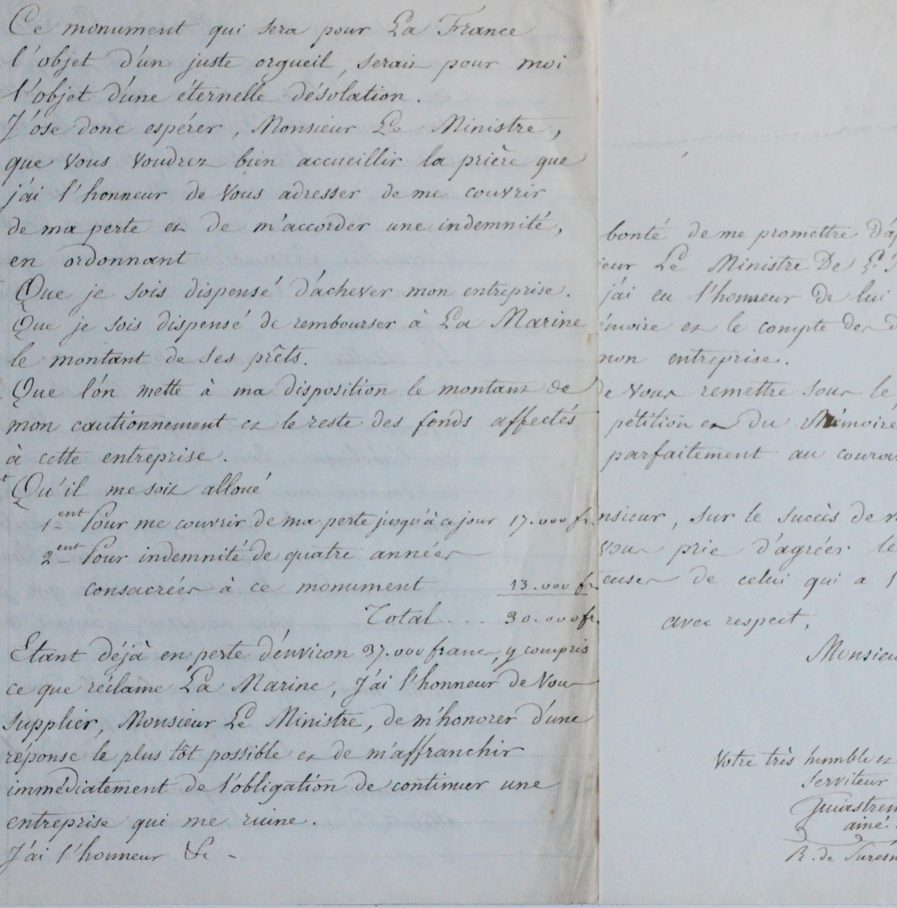 Ce monument qui sera pour La France
l'objet d'un juste orgueil, serait pour moi
l'objet d'une éternelle désolation.
J'ose donc espérer, Monsieur Le Ministre,
que Vous Voudrez bien accueillir la prière que
j'ai l'honneur de Vous adresser de me couvrir
de ma perte et de m'accorder une indemnité,
en ordonnant
Que je sois dispensé d'achever mon entreprise.
Que je sois dispensé de rembourser à La Marine
le montant de ses prêts.
Que l'on mette à ma disposition le montant de
mon cautionnement et le reste des fonds affectés
à cette entreprise.
Qu'il me soit alloué
1ent Pour me couvrir de ma perte jusqu'à ce jour 17.000 fr.
2ent Pour indemnité de quatre années
consacrées à ce monument 13.000 fr
Total... 30.000 fr.
Etant déjà en perte d'environ 37.000 francs, y compris
ce que réclame La Marine, J'ai l'honneur de Vous
supplier, Monsieur Le Ministre, de m'honorer d'une
réponse le plus tôt possible et de m'affranchir
immédiatement de l'obligation de continuer une
entreprise qui me ruine.
J'ai l'honneur &c -
bonté de me promettre d'ap
ieur Le Ministre De L'I
j'ai eu l'honneur de lui
émoire et le compte des d
mon entreprise.
de vous remettre sous le
pétition et du Mémoire
parfaitement au coura
nsieur, sur le succès de
vous prie d'agréer le
euses de celui qui a l
avec respect,
Monsieu
Votre très humble et
Serviteur
ainé.
R. de Suresn